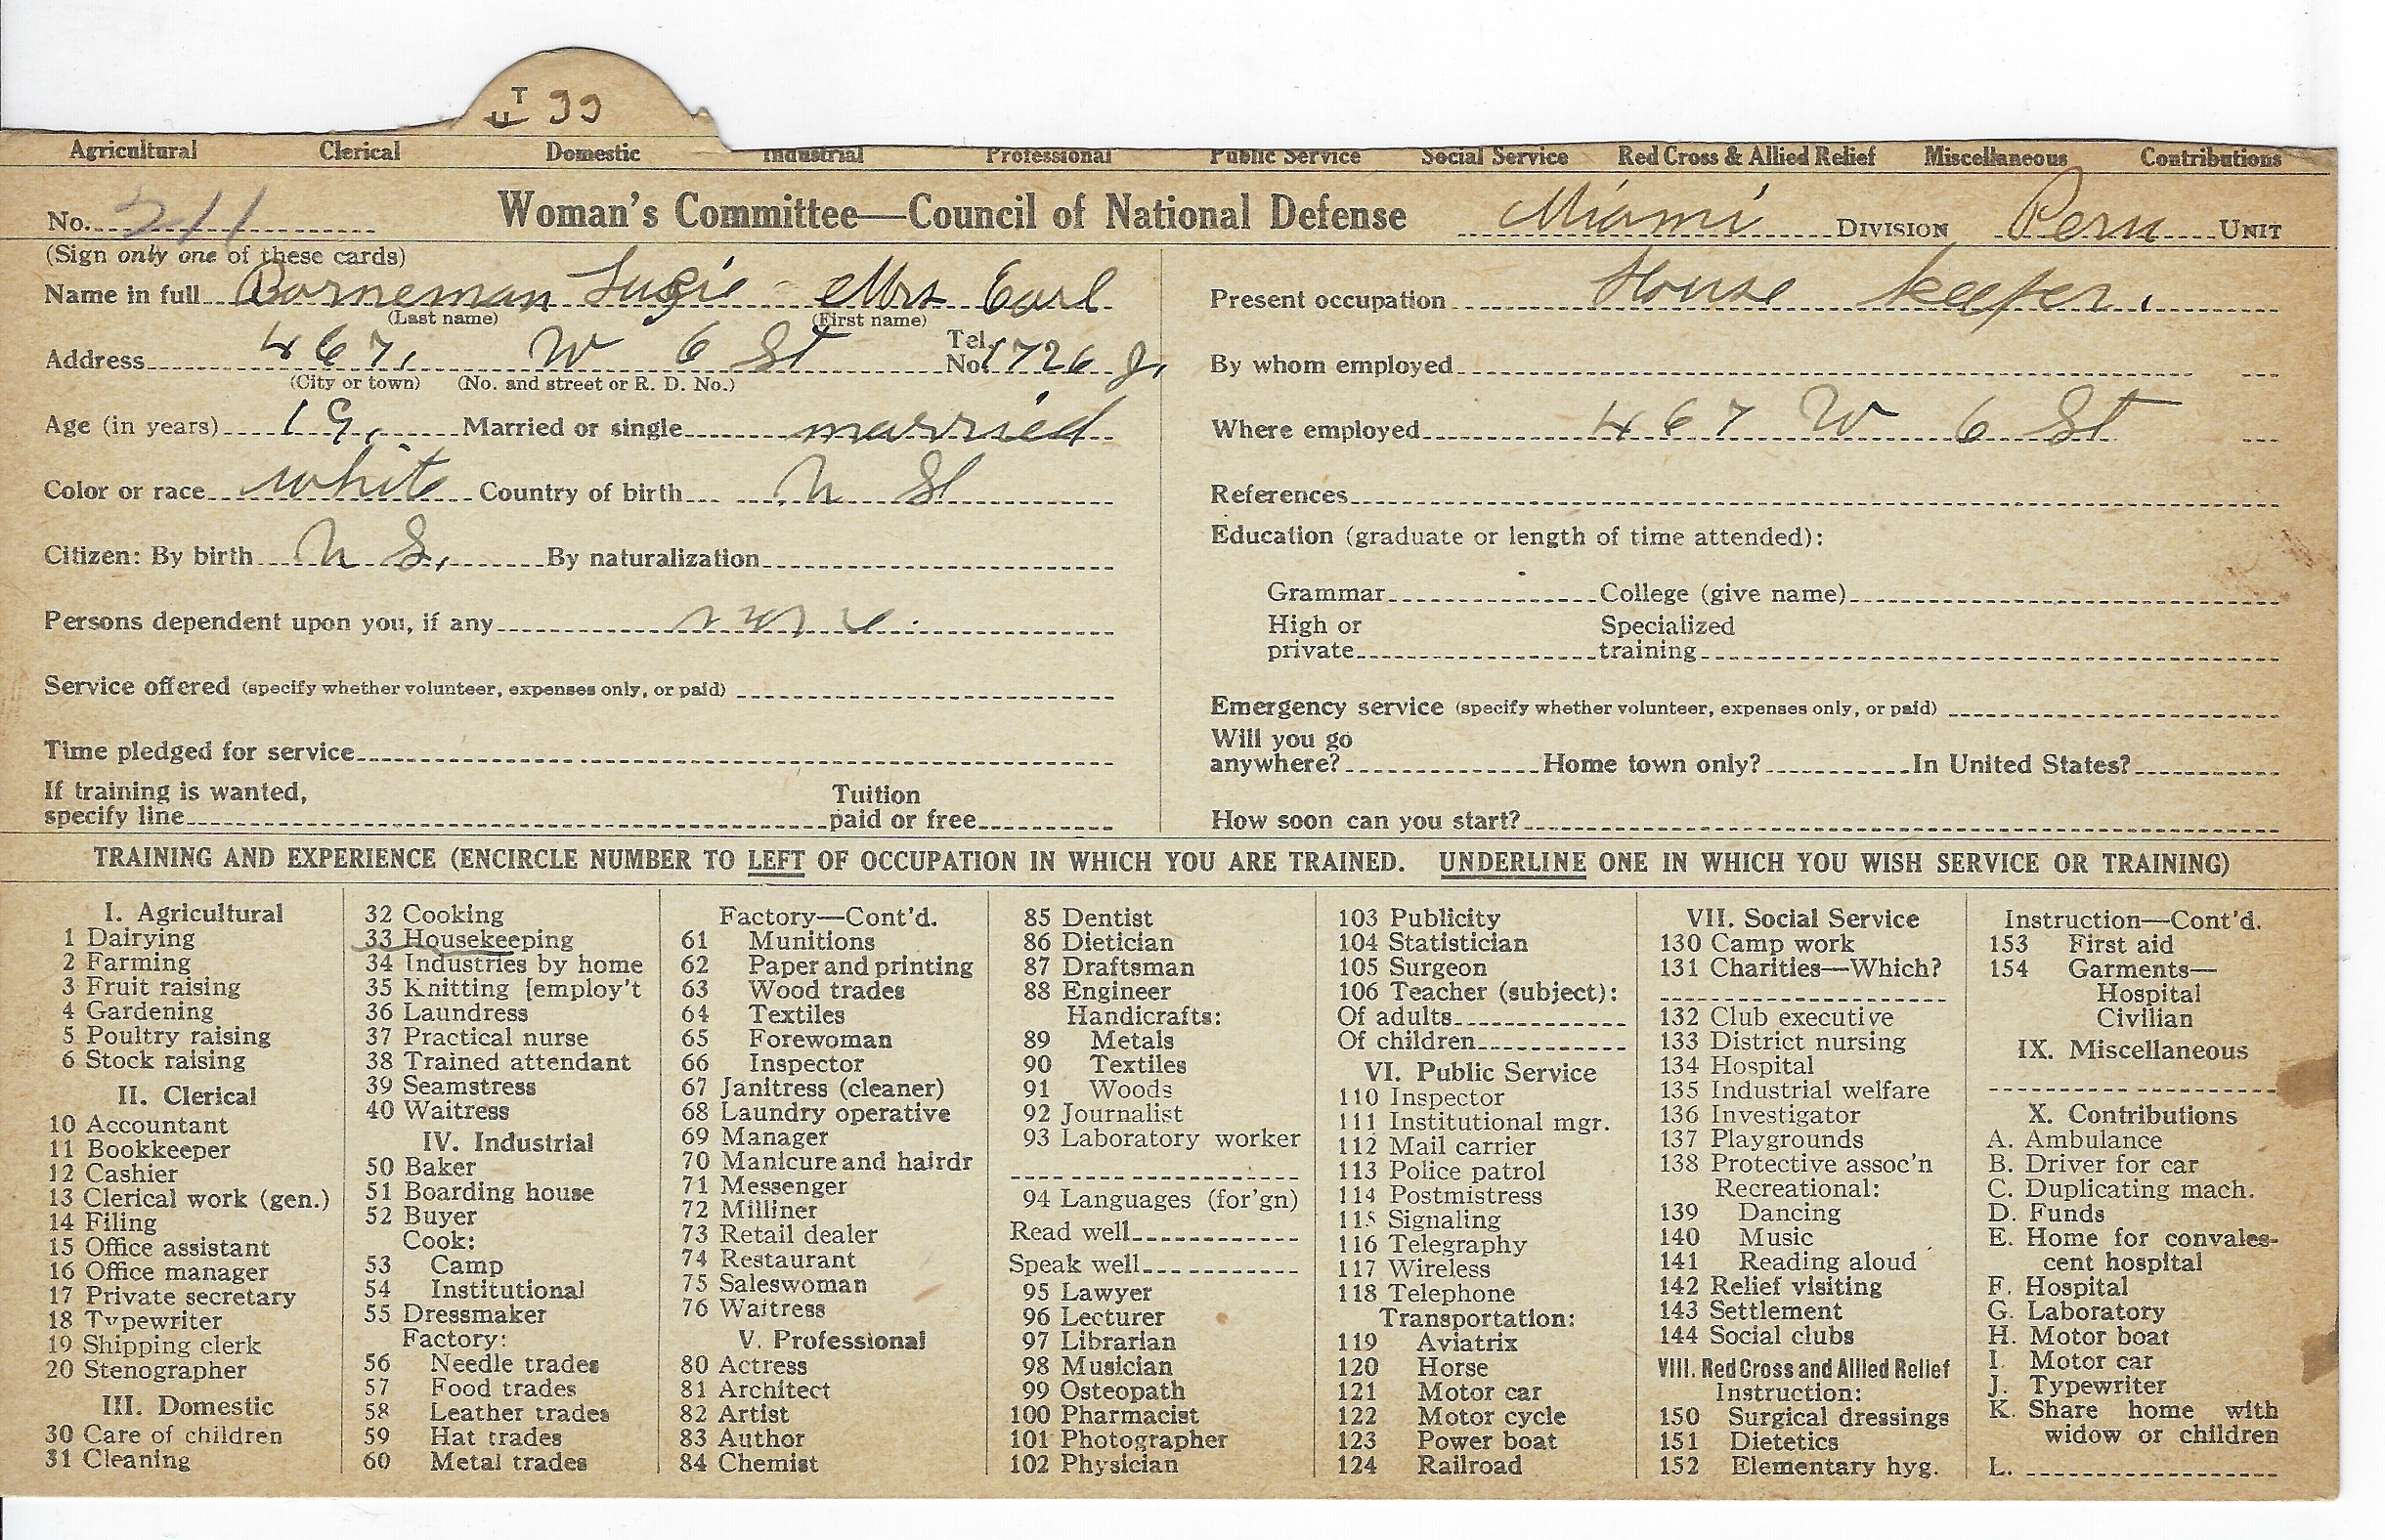 T 33
Agricultural Clerical Domestic Industrial Professional Public Service Social Service Red Cross & Allied Relief Miscellaneous Contributions
No. 211 Woman's Committee—Council of National Defense Miami DIVISION Peru UNIT
(Sign only one of these cards)
Name in full Borneman Suzie - Mrs Earl
(Last name) (First name)
Address 467, W 6 St Tel. No. 1726 J,
(City or town) (No. and street or R. D. No.)
Age (in years) 19, Married or single married
Color or race white Country of birth U S
Citizen: By birth U S, By naturalization
Persons dependent upon you, if any none
Service offered (specify whether volunteer, expenses only, or paid)
Time pledged for service
If training is wanted,
specify line Tuition paid or free
Present occupation House keeper,
By whom employed
Where employed 467 W 6 St
References
Education (graduate or length of time attended):
Grammar College (give name)
High or private Specialized training
Emergency service (specify whether volunteer, expenses only, or paid)
Will you go
anywhere? Home town only? In United States?
How soon can you start?
TRAINING AND EXPERIENCE (ENCIRCLE NUMBER TO LEFT OF OCCUPATION IN WHICH YOU ARE TRAINED. UNDERLINE ONE IN WHICH YOU WISH SERVICE OR TRAINING)
I. Agricultural
1 Dairying
2 Farming
3 Fruit raising
4 Gardening
5 Poultry raising
6 Stock raising
II. Clerical
10 Accountant
11 Bookkeeper
12 Cashier
13 Clerical work (gen.)
14 Filing
15 Office assistant
16 Office manager
17 Private secretary
18 Typewriter
19 Shipping clerk
20 Stenographer
III. Domestic
30 Care of children
31 Cleaning
32 Cooking
33 Housekeeping
34 Industries by home
35 Knitting [employ't
36 Laundress
37 Practical nurse
38 Trained attendant
39 Seamstress
40 Waitress
IV. Industrial
50 Baker
51 Boarding house
52 Buyer
Cook:
53 Camp
54 Institutional
55 Dressmaker
Factory:
56 Needle trades
57 Food trades
58 Leather trades
59 Hat trades
60 Metal trades
Factory—Cont'd.
61 Munitions
62 Paper and printing
63 Wood trades
64 Textiles
65 Forewoman
66 Inspector
67 Janitress (cleaner)
68 Laundry operative
69 Manager
70 Manicure and hairdr
71 Messenger
72 Milliner
73 Retail dealer
74 Restaurant
75 Saleswoman
76 Waitress
V. Professional
80 Actress
81 Architect
82 Artist
83 Author
84 Chemist
85 Dentist
86 Dietician
87 Draftsman
88 Engineer
Handicrafts:
89 Metals
90 Textiles
91 Woods
92 Journalist
93 Laboratory worker
94 Languages (for'gn)
Read well
Speak well
95 Lawyer
96 Lecturer
97 Librarian
98 Musician
99 Osteopath
100 Pharmacist
101 Photographer
102 Physician
103 Publicity
104 Statistician
105 Surgeon
106 Teacher (subject):
Of adults
Of children
VI. Public Service
110 Inspector
111 Institutional mgr.
112 Mail carrier
113 Police patrol
114 Postmistress
115 Signaling
116 Telegraphy
117 Wireless
118 Telephone
Transportation:
119 Aviatrix
120 Horse
121 Motor car
122 Motor cycle
123 Power boat
124 Railroad
VII. Social Service
130 Camp work
131 Charities—Which?
132 Club executive
133 District nursing
134 Hospital
135 Industrial welfare
136 Investigator
137 Playgrounds
138 Protective assoc'n
Recreational:
139 Dancing
140 Music
141 Reading aloud
142 Relief visiting
143 Settlement
144 Social clubs
VIII. Red Cross and Allied Relief
Instruction:
150 Surgical dressings
151 Dietetics
152 Elementary hyg.
Instruction—Cont'd.
153 First aid
154 Garments—
Hospital
Civilian
IX. Miscellaneous
X. Contributions
A. Ambulance
B. Driver for car
C. Duplicating mach.
D. Funds
E. Home for convales-
cent hospital
F. Hospital
G. Laboratory
H. Motor boat
I. Motor car
J. Typewriter
K. Share home with
widow or children
L.